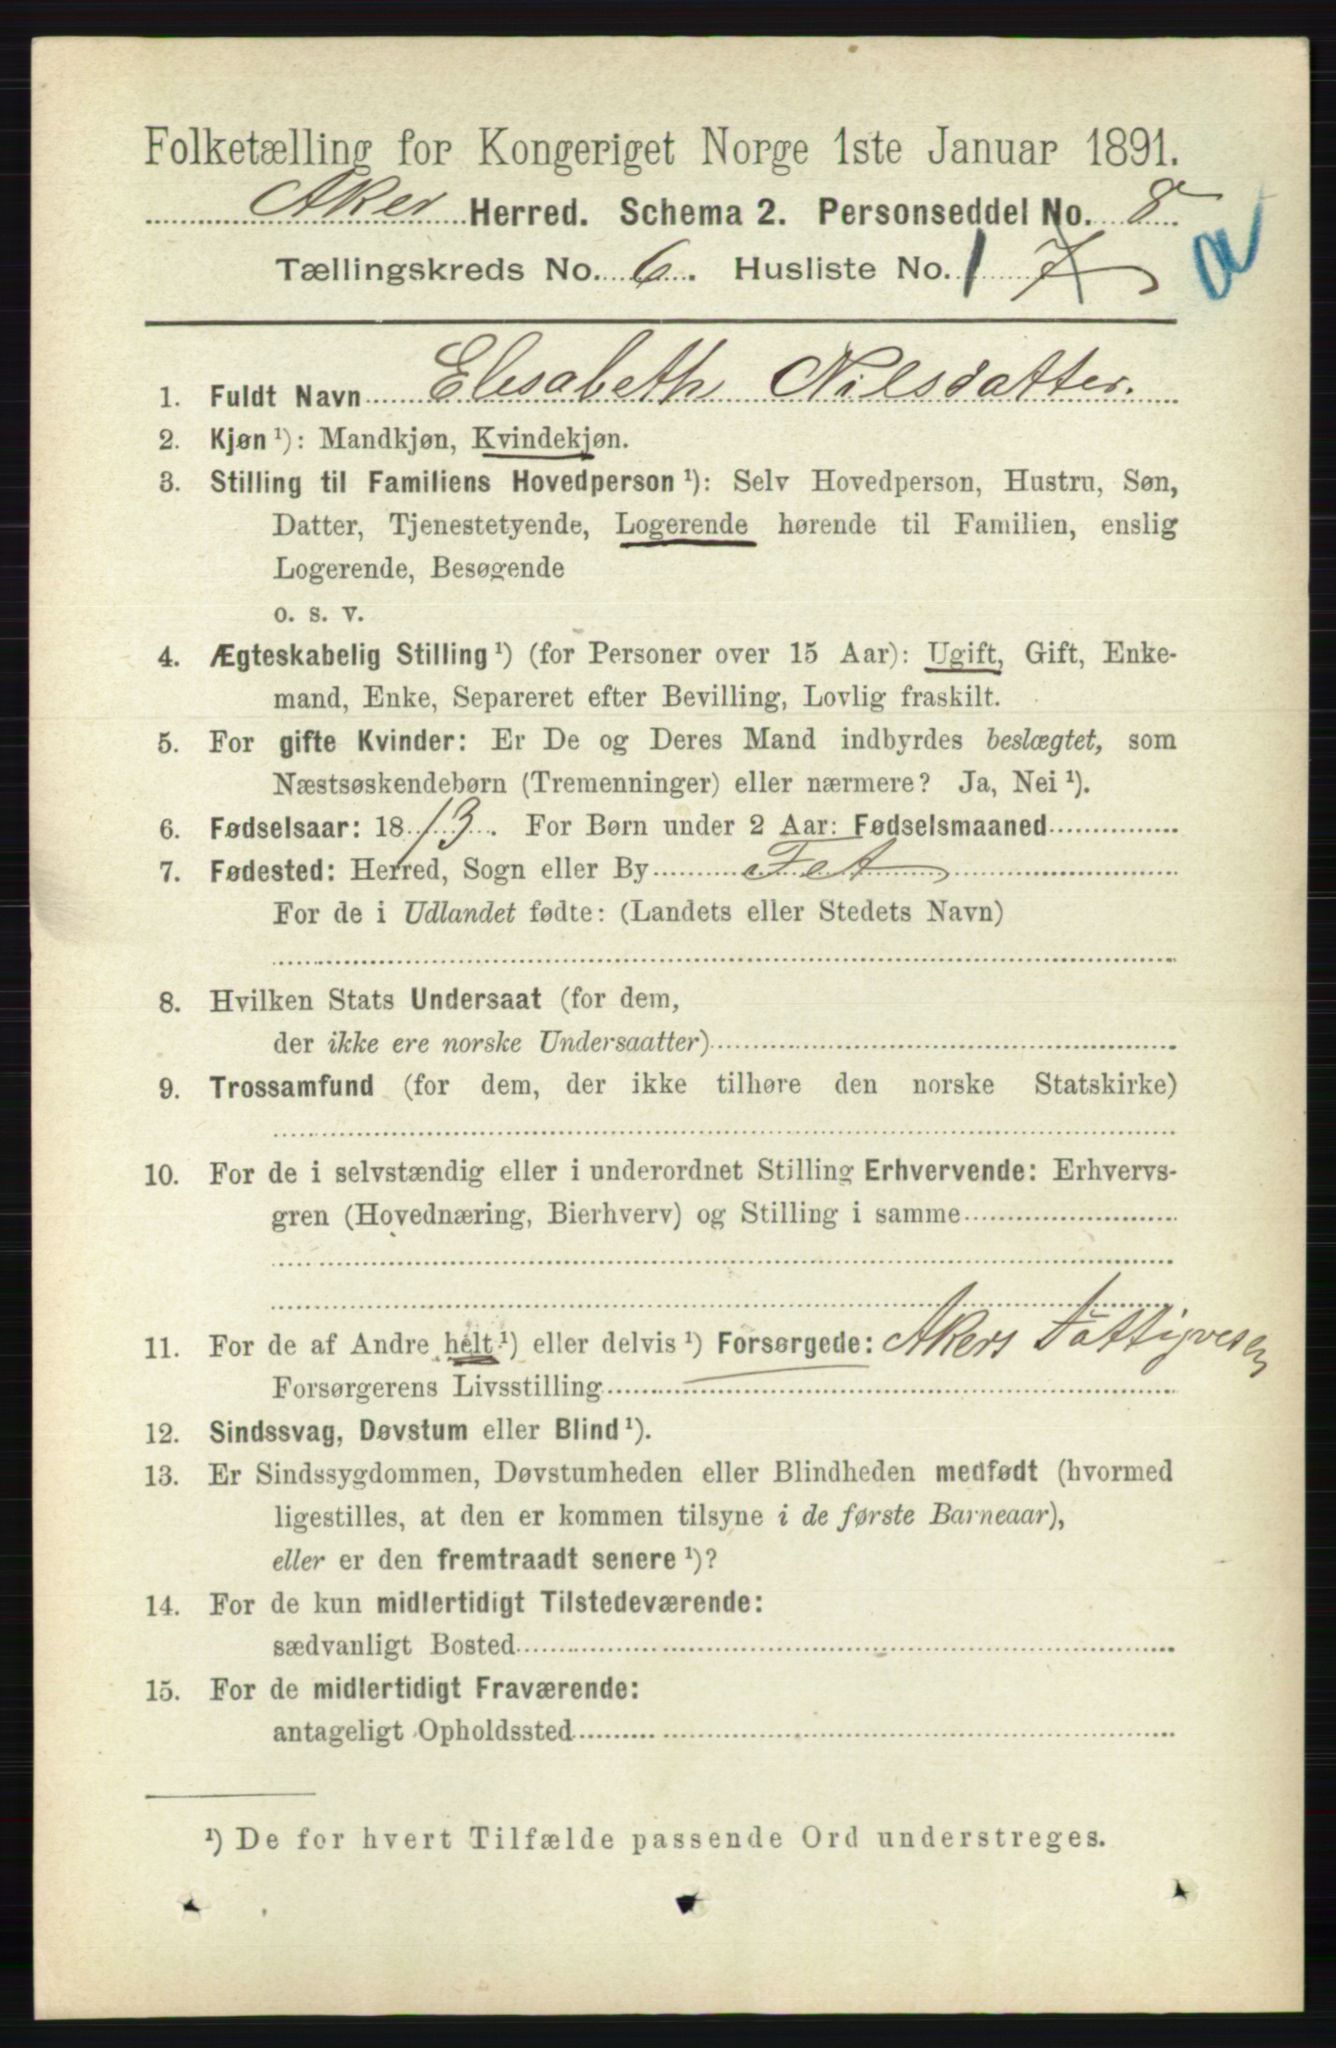 Folketælling for Kongeriget Norge 1ste Januar 1891.
Aker Herred. Schema 2. Personseddel No. 8.
a
Tællingskreds No. 6. Husliste No. 1 7
1. Fuldt Navn Elisabeth Nilsdatter.
2. Kjøn ¹): Mandkjøn, Kvindekjøn.
3. Stilling til Familiens Hovedperson ¹): Selv Hovedperson, Hustru, Søn,
Datter, Tjenestetyende, Logerende hørende til Familien, enslig
Logerende, Besøgende
o. s. v.
4. Ægteskabelig Stilling ¹) (for Personer over 15 Aar): Ugift, Gift, Enke-
mand, Enke, Separeret efter Bevilling, Lovlig fraskilt.
5. For gifte Kvinder: Er De og Deres Mand indbyrdes beslægtet, som
Næstsøskendebørn (Tremenninger) eller nærmere? Ja, Nei ¹).
6. Fødselsaar: 1813. For Børn under 2 Aar: Fødselsmaaned
7. Fødested: Herred, Sogn eller By Fet
For de i Udlandet fødte: (Landets eller Stedets Navn)
8. Hvilken Stats Undersaat (for dem,
der ikke ere norske Undersaatter)
9. Trossamfund (for dem, der ikke tilhøre den norske Statskirke)
10. For de i selvstændig eller i underordnet Stilling Erhvervende: Erhvervs-
gren (Hovednæring, Bierhverv) og Stilling i samme
11. For de af Andre helt ¹) eller delvis ¹) Forsørgede: Akers Fattigvesen
Forsørgerens Livsstilling
12. Sindssvag, Døvstum eller Blind ¹).
13. Er Sindssygdommen, Døvstumheden eller Blindheden medfødt (hvormed
ligestilles, at den er kommen tilsyne i de første Barneaar),
eller er den fremtraadt senere ¹)?
14. For de kun midlertidigt Tilstedeværende:
sædvanligt Bosted
15. For de midlertidigt Fraværende:
antageligt Opholdssted
¹) De for hvert Tilfælde passende Ord understreges.